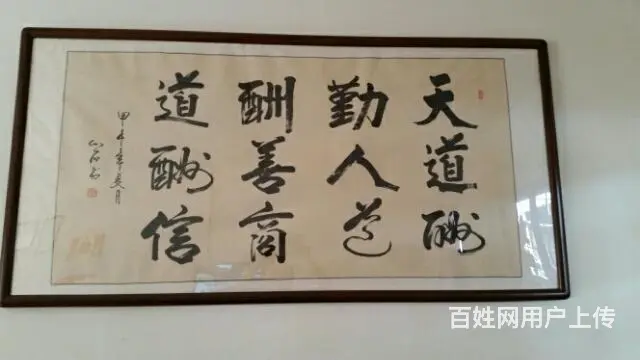 天道酬
勤人道
酬善商
道酬信
甲午年夏月
百姓网用户上传